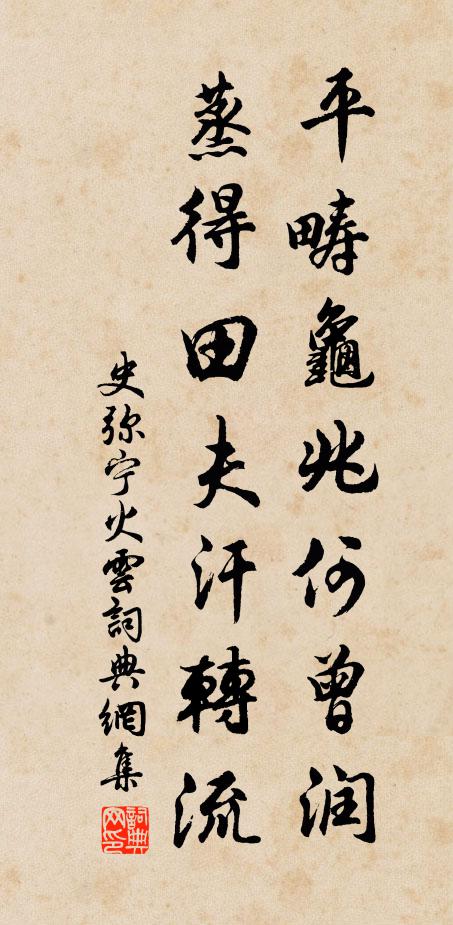 平疇龜兆何曾润
蒸得田夫汗轉流
史弥宁火雲詞典網集
詞典网印